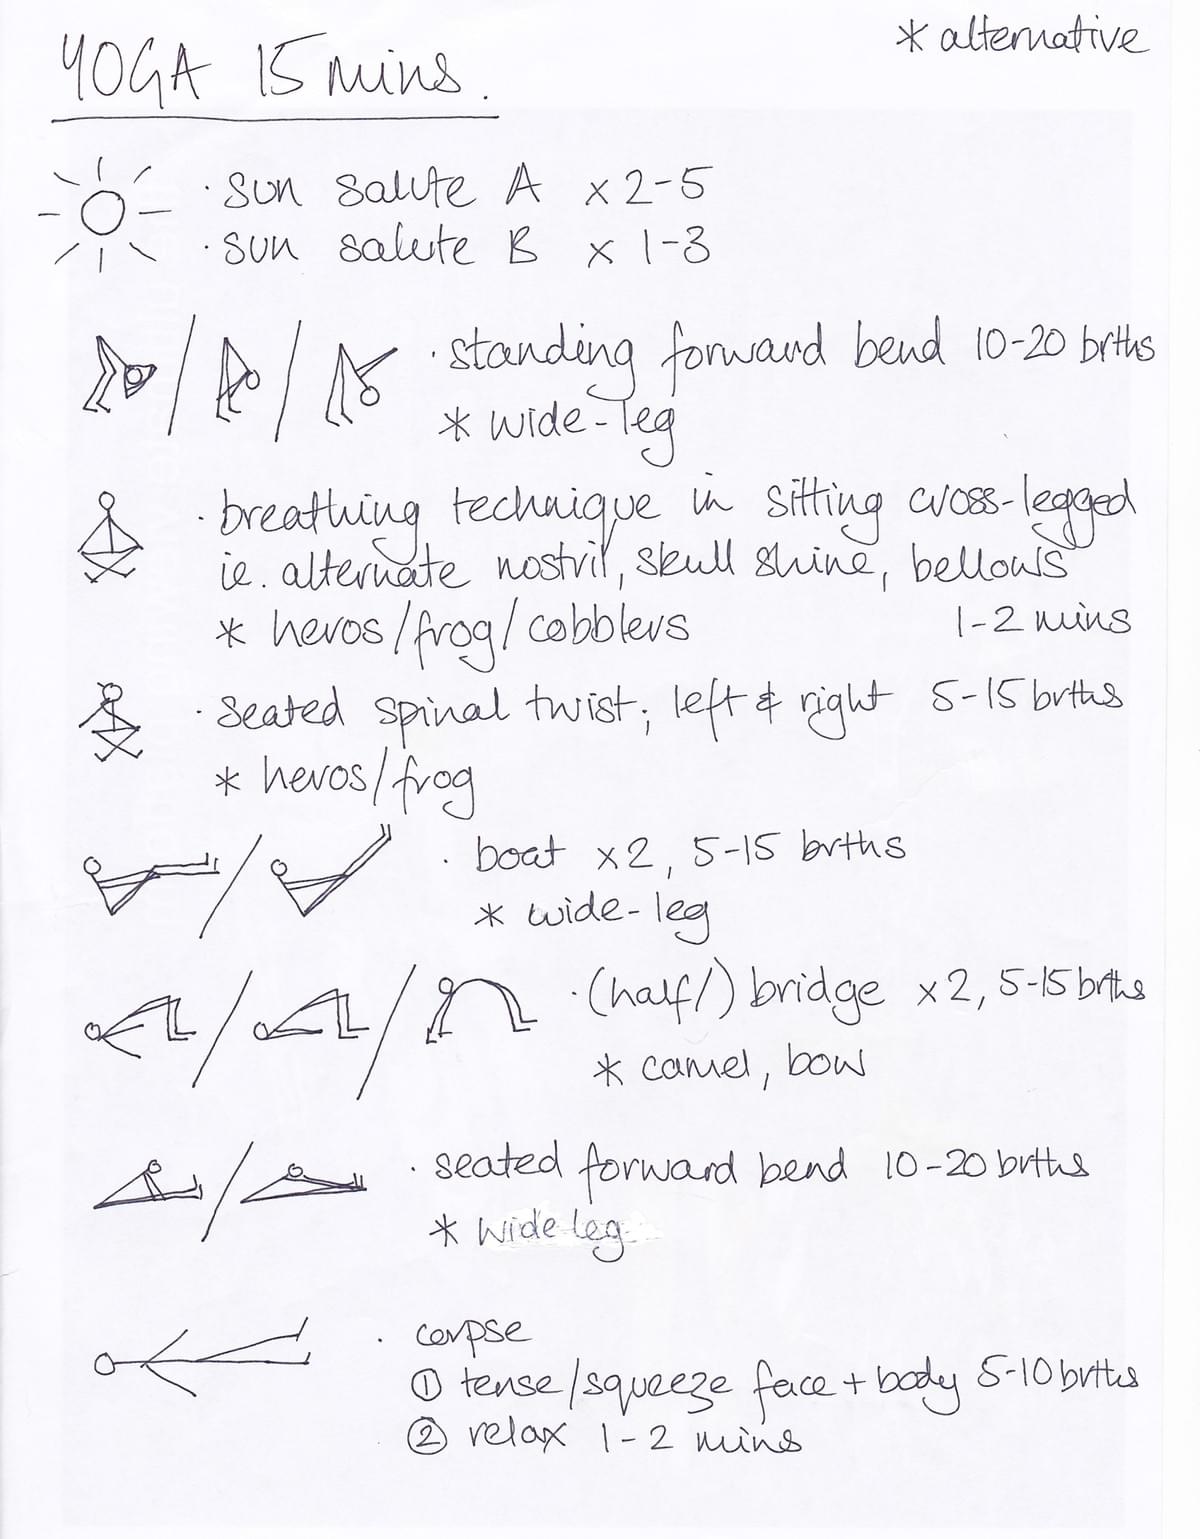 YOGA 15 mins.
* alternative
· sun salute A x 2-5
· sun salute B x 1-3
· standing forward bend 10-20 brths
* wide-leg
· breathing technique in sitting cross-legged
ie. alternate nostril, skull shine, bellows
* heros/frog/cobblers 1-2 mins
· seated spinal twist; left & right 5-15 brths
* heros/frog
· boat x2, 5-15 brths
* wide-leg
· (half/) bridge x2, 5-15 brths
* camel, bow
· seated forward bend 10-20 brths
* wide leg
· corpse
① tense/squeeze face + body 5-10 brths
② relax 1-2 mins